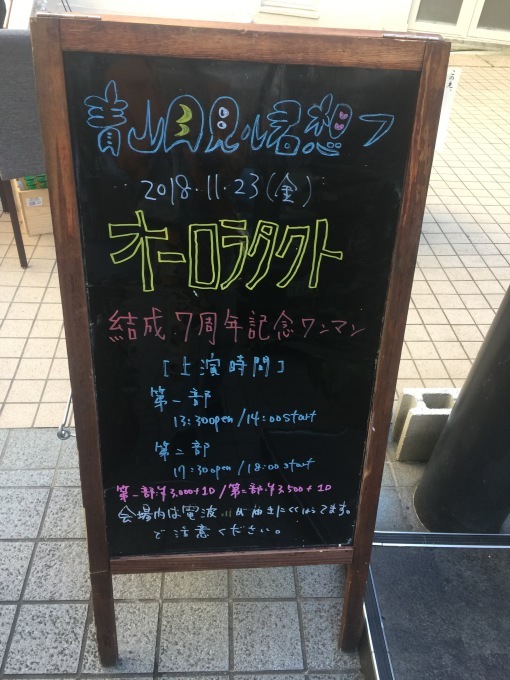 青山月見ル君想フ
2018.11.23(金)
オーロラタクト
結成7周年記念ワンマン
[上演時間]
第一部
13:30open/14:00start
第二部
17:30open/18:00start
第一部:¥3,000+1D/第二部:¥3,500+1D
会場内は電波が届きにくくなってます。
ご注意ください。